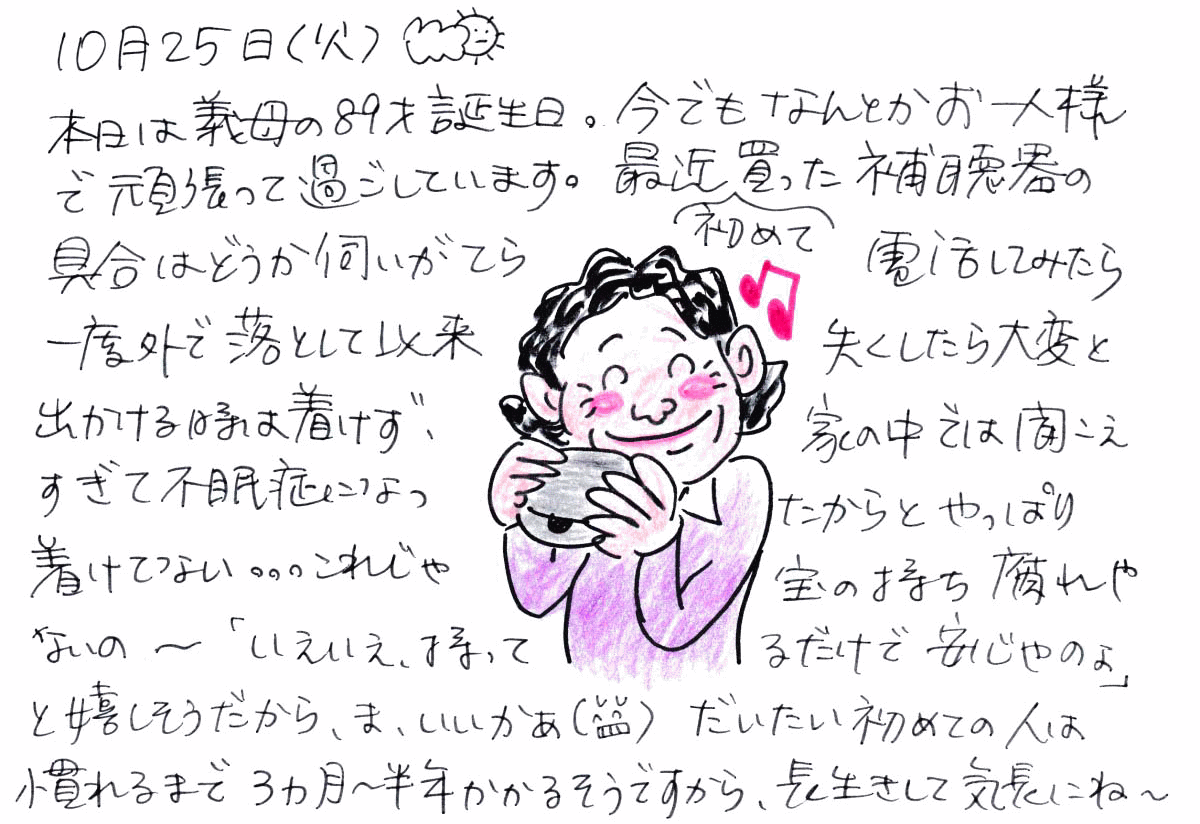 10月25日(火)
本日は義母の89才誕生日。今でもなんとかお一人様
で頑張って過ごしています。最近買った補聴器の
初めて
具合はどうか伺いがてら 電話してみたら
一度外で落として以来 失くしたら大変と
出かける時は着けず、 家の中では聞こえ
すぎて不眠症になっ たからとやっぱり
着けてない。。。これじゃ 宝の持ち腐れや
ないの〜「いえいえ、持って るだけで安心やのよ」
と嬉しそうだから、ま、いいかぁ( ) だいたい初めての人は
慣れるまで3カ月〜半年かかるそうですから、長生きして気長にね〜